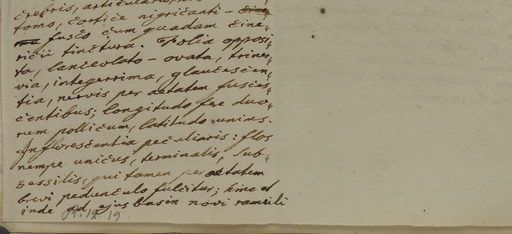 crebris, articulatis,
tomo, cortice nigricanti –
fusco cum quadam cine,
ricii tinctura. Folia opposi,
ta, lanceolato – ovata, triner,
via, integerrima, glaucescen,
tia, nervis per aetatem fusces,
centibus; longitudo fere duo,
rum pollicum, latitudo unius.
Inflorescentia peculiaris: flos
nempe unicus, terminalis, sub,
sessilis, qui tamen per aetatem
brevi pedunculo fulcitur; hinc et
inde ad ejus basin novi ramuli
19